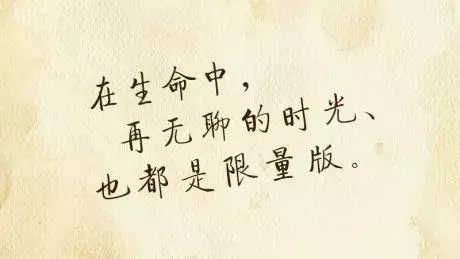 在生命中，
再无聊的时光、
也都是限量版。